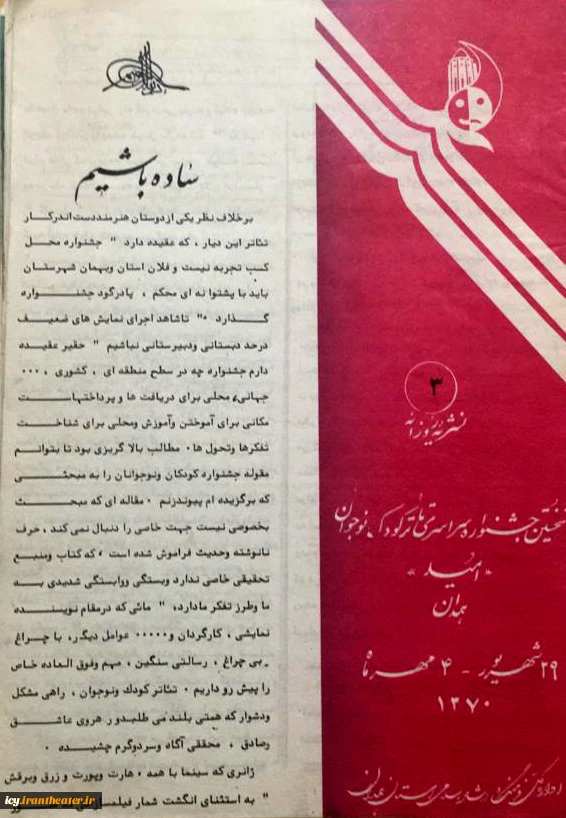 ساده باشیم
برخلاف نظر یکی از دوستان هنرمند دست اندرکار
تئاتر این دیار ، که عقیده دارد " جشنواره محل
کسب تجربه نیست و فلان استان وبهمان شهرستان
باید با پشتوا نه ای محکم ، پادرگود جشنواره
گذارد ." تاشاهد اجرای نمایش های ضعیف
درحد دبستانی ودبیرستانی نباشیم " حقیر عقیده
دارم جشنواره چه در سطح منطقه ای ، کشوری ، ...
جهانی، محلی برای دریافت ها و پرداختهاست
مکانی برای آموختن وآموزش ومحلی برای شناخت
تفکرها وتحول ها . مطالب بالا گریزی بود تا بتوانم
مقوله جشنواره کودکان ونوجوانان را به مبحثی
که برگزیده ام پیوندزنم . مقاله ای که مبحث
بخصوصی نیست جهت خاصی را دنبال نمی کند ، حرف
نانوشته وحدیث فراموش شده است . که کتاب ومنبع
تحقیقی خاصی ندارد وبستگی ووابستگی شدیدی به
ما وطرز تفکر مادارد، " مائی که درمقام نویسنده
نمایشی ، کارگردان و..... عوامل دیگر، با چراغ
ـ بی چراغ ، رسالتی سنگین ، مهم وفوق العاده خاص
را پیش رو داریم . تئاتر کودك ونوجوان ، راهی مشکل
ودشوار که همتی بلند می طلبدو رهروی عاشق
وصادق ، محققی آگاه وسردوگرم چشیده .
ژانری که سینما با همه . هارت وپورت و زرق وبرقش
" به استثنای انگشت شمار
۳
نشریه روزانه
نخستین جشنواره سراسری تئاتر کودک و نوجوان
« امید »
همدان
۲۹ شهریور - ۴ مهرماه
۱۳۷۰
اداره کل فرهنگ و ارشاد اسلامی استان همدان
icy.irantheater.ir